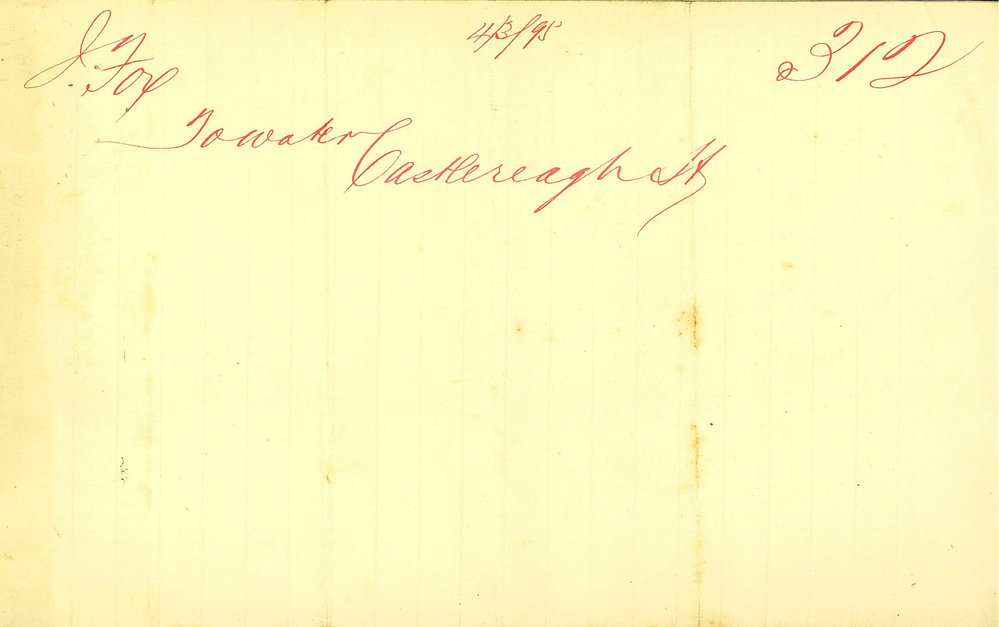 J. Fox
4/3/95
312
To water
Castlereagh St